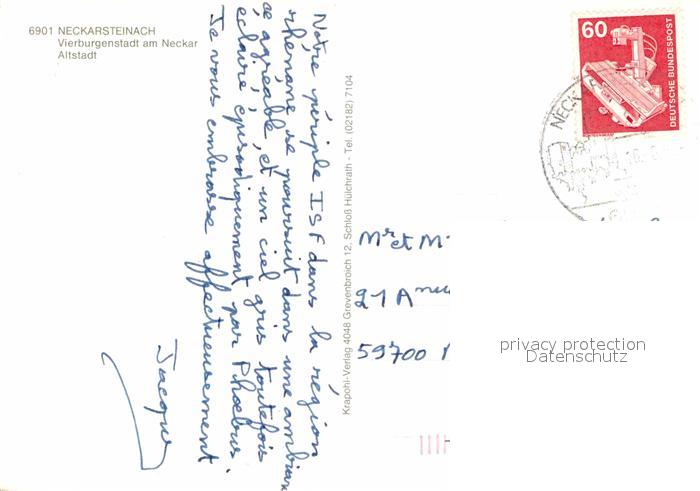 6901 NECKARSTEINACH
Vierburgenstadt am Neckar
Altstadt
Notre périple ISF dans la région
rhénane se poursuit dans une ambian
ce agréable, et un ciel gris toutefois
éclairé épisodiquement par Phœbus.
Je vous embrasse affectueusement
Jacques
Krapohl-Verlag 4048 Grevenbroich 12, Schloß Hülchrath - Tel. (02182) 7104
60
DEUTSCHE BUNDESPOST
NECK
Mr et M
21 A
59700
privacy protection
Datenschutz